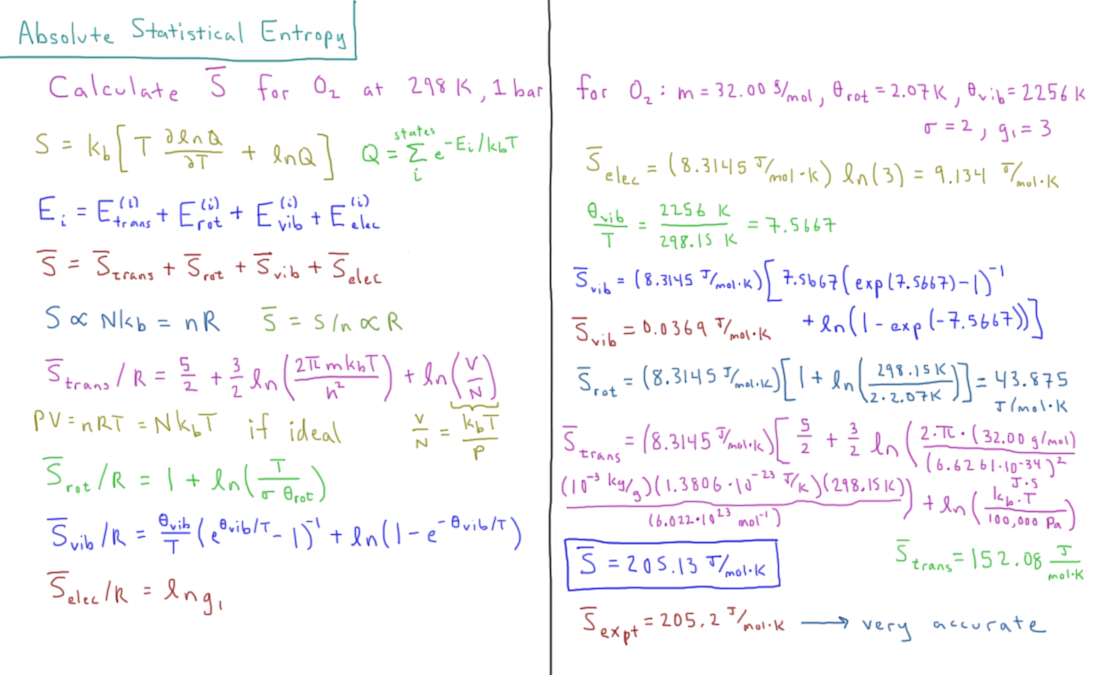 Absolute Statistical Entropy
Calculate S̅ for O₂ at 298 K, 1 bar
S = k_b [ T ∂lnQ/∂T + lnQ ]   Q = Σ_i^states e^(-E_i/k_bT)
E_i = E_trans^(i) + E_rot^(i) + E_vib^(i) + E_elec^(i)
S̅ = S̅_trans + S̅_rot + S̅_vib + S̅_elec
S ∝ Nk_b = nR   S̅ = S/n ∝ R
S̅_trans/R = 5/2 + 3/2 ln(2πmk_bT/h²) + ln(V/N)
PV = nRT = Nk_bT if ideal   V/N = k_bT/P
S̅_rot/R = 1 + ln(T/σθ_rot)
S̅_vib/R = θ_vib/T (e^(θ_vib/T) - 1)^-1 + ln(1 - e^(-θ_vib/T))
S̅_elec/R = ln g₁
for O₂: m = 32.00 g/mol, θ_rot = 2.07 K, θ_vib = 2256 K
σ = 2, g₁ = 3
S̅_elec = (8.3145 J/mol·K) ln(3) = 9.134 J/mol·K
θ_vib/T = 2256 K/298.15 K = 7.5667
S̅_vib = (8.3145 J/mol·K)[7.5667(exp(7.5667)-1)^-1
+ ln(1 - exp(-7.5667))]
S̅_vib = 0.0369 J/mol·K
S̅_rot = (8.3145 J/mol·K)[1 + ln(298.15K/2·2.07K)] = 43.875
J/mol·K
S̅_trans = (8.3145 J/mol·K)[5/2 + 3/2 ln(2·π·(32.00 g/mol)/(6.6261·10^-34)² J·s
(10^-3 kg/g)(1.3806·10^-23 J/K)(298.15K)/(6.022·10^23 mol^-1)) + ln(k_b·T/100,000 Pa)
S̅_trans = 152.08 J/mol·K
S̅ = 205.13 J/mol·K
S̅_expt = 205.2 J/mol·K → very accurate